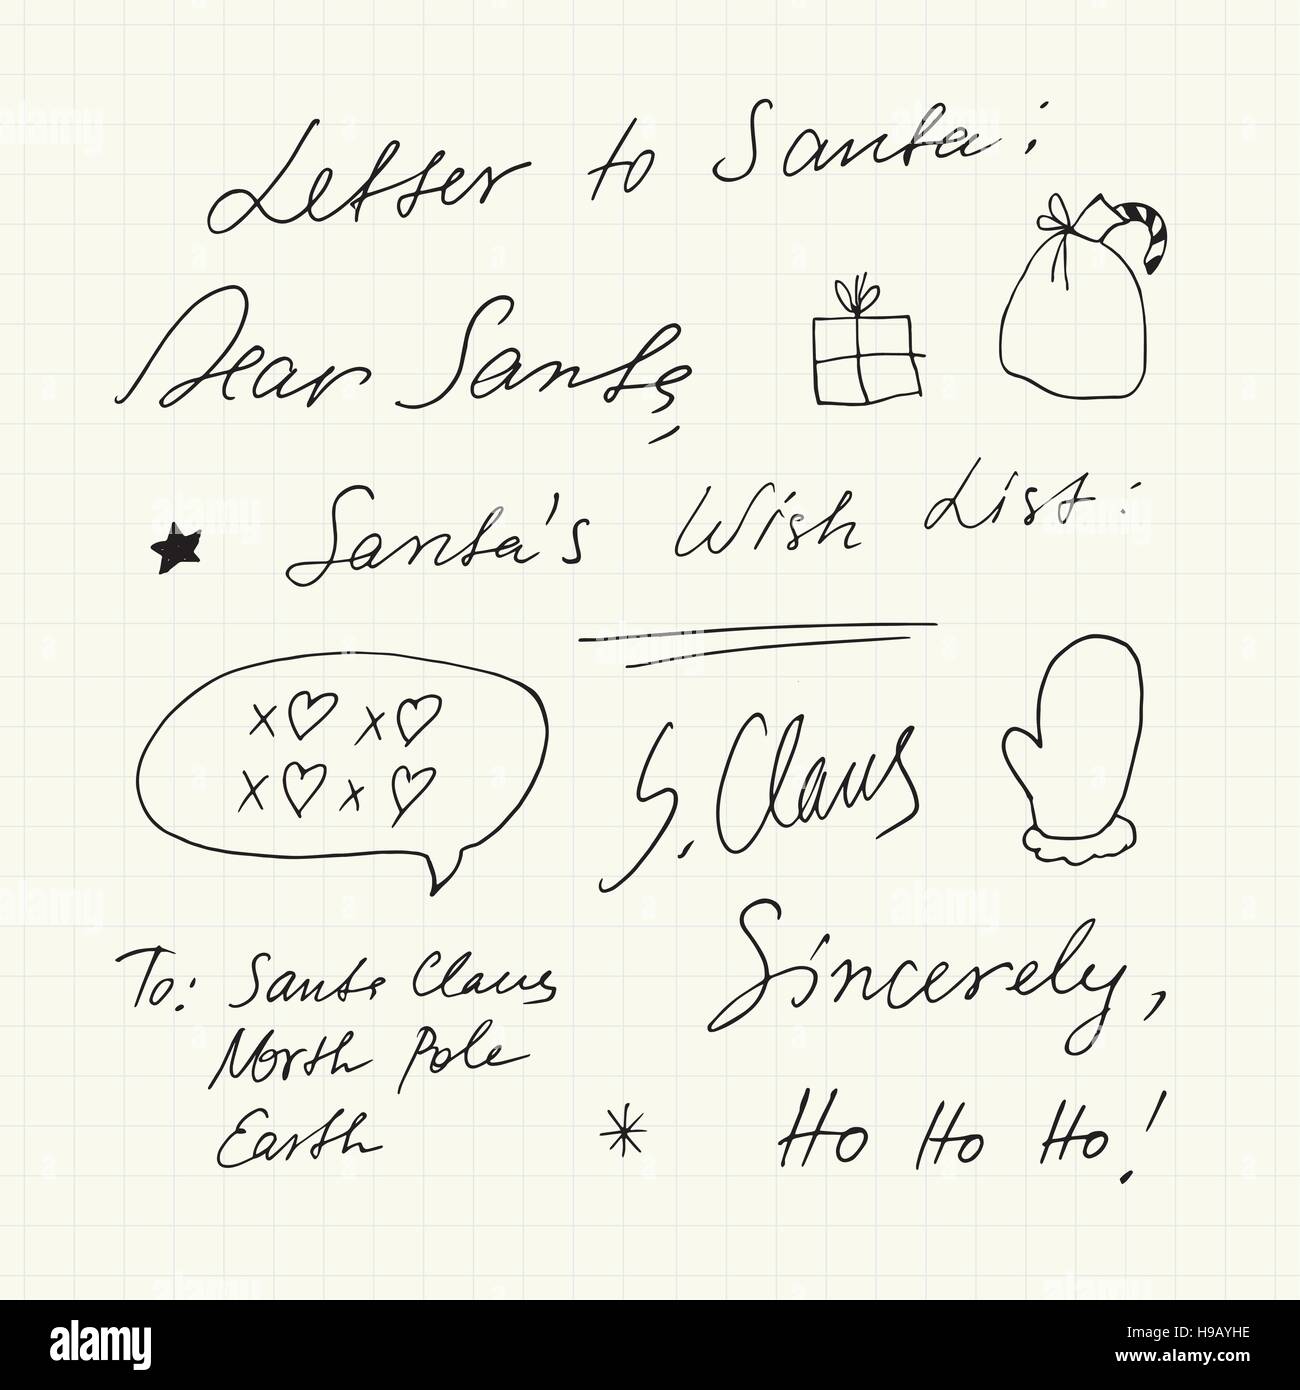 Letter to Santa:
Dear Santa,
Santa's Wish List:
x♡ x♡
x♡ x♡
S. Claus
Sincerely,
To: Santa Claus
North Pole
Earth
* Ho Ho Ho!
alamy
Image ID: H9AYHE
www.alamy.com